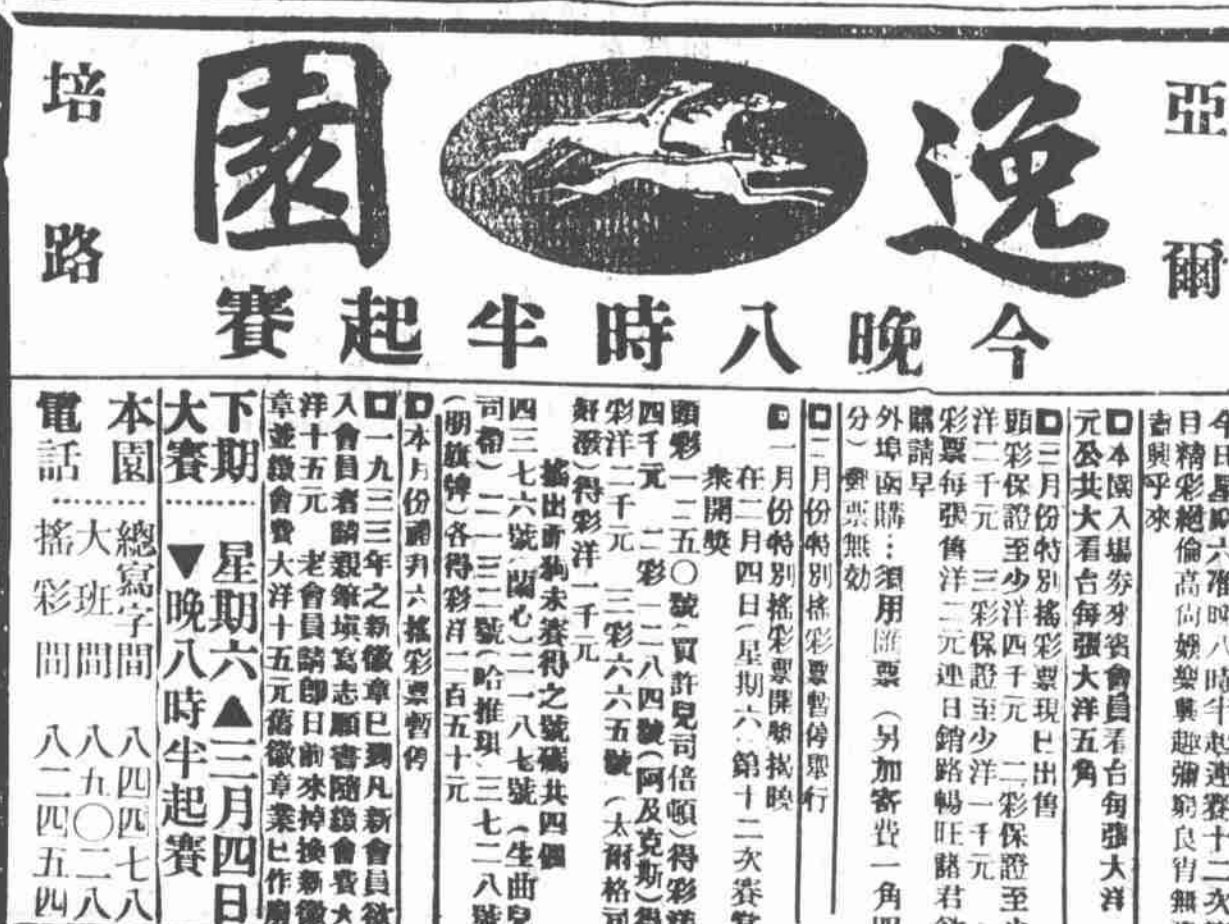 亞爾培路
逸園
今晚八時半起賽
目精彩絕倫高尚娛樂興趣彌窮良宵無
興乎來
本園入場券來賓會員看台每張大洋
元公共大看台每張大洋五角
三月份特別搖彩票現已出售
頭彩保證至少洋四千元 二彩保證至
洋二千元 三彩保證至少洋一千元
彩票每張售洋二元連日銷路暢旺諸君欲
購請早
外埠函購…須用匯票(另加寄費一角
分)郵票無効
二月份特別搖彩票暫停舉行
一月份特別搖彩票開勝揭曉
在二月四日(星期六)第十二次賽
衆開獎
頭彩 一二五〇號(賈許兒司倍頓)得彩洋
四千元 二彩 一二八四號(阿及克斯)得
彩洋二千元 三彩六六五號(太爾格司
好潑)得彩洋一千元
搖出而狗未賽得之號碼共四個
四三七六號(蘭心)二一八七號(生曲兒
司蒂)二一三二號(哈推琪)三七二八號
(朋旗牌)各得彩洋二百五十元
本月份禮拜六搖彩票暫停
一九三三年之新徽章已到凡新會員欲
入會員者請親筆塡寫志願書隨繳會費大
洋十五元 老會員請卽日前來掉換新徽
章並繳會費大洋十五元舊徽章業已作廢
下期 星期六▲三月四日
大賽……▼晚八時半起賽
本園 總寫字間 八四四七八
……大班間 八九〇二八
電話……搖彩間 八二四五四